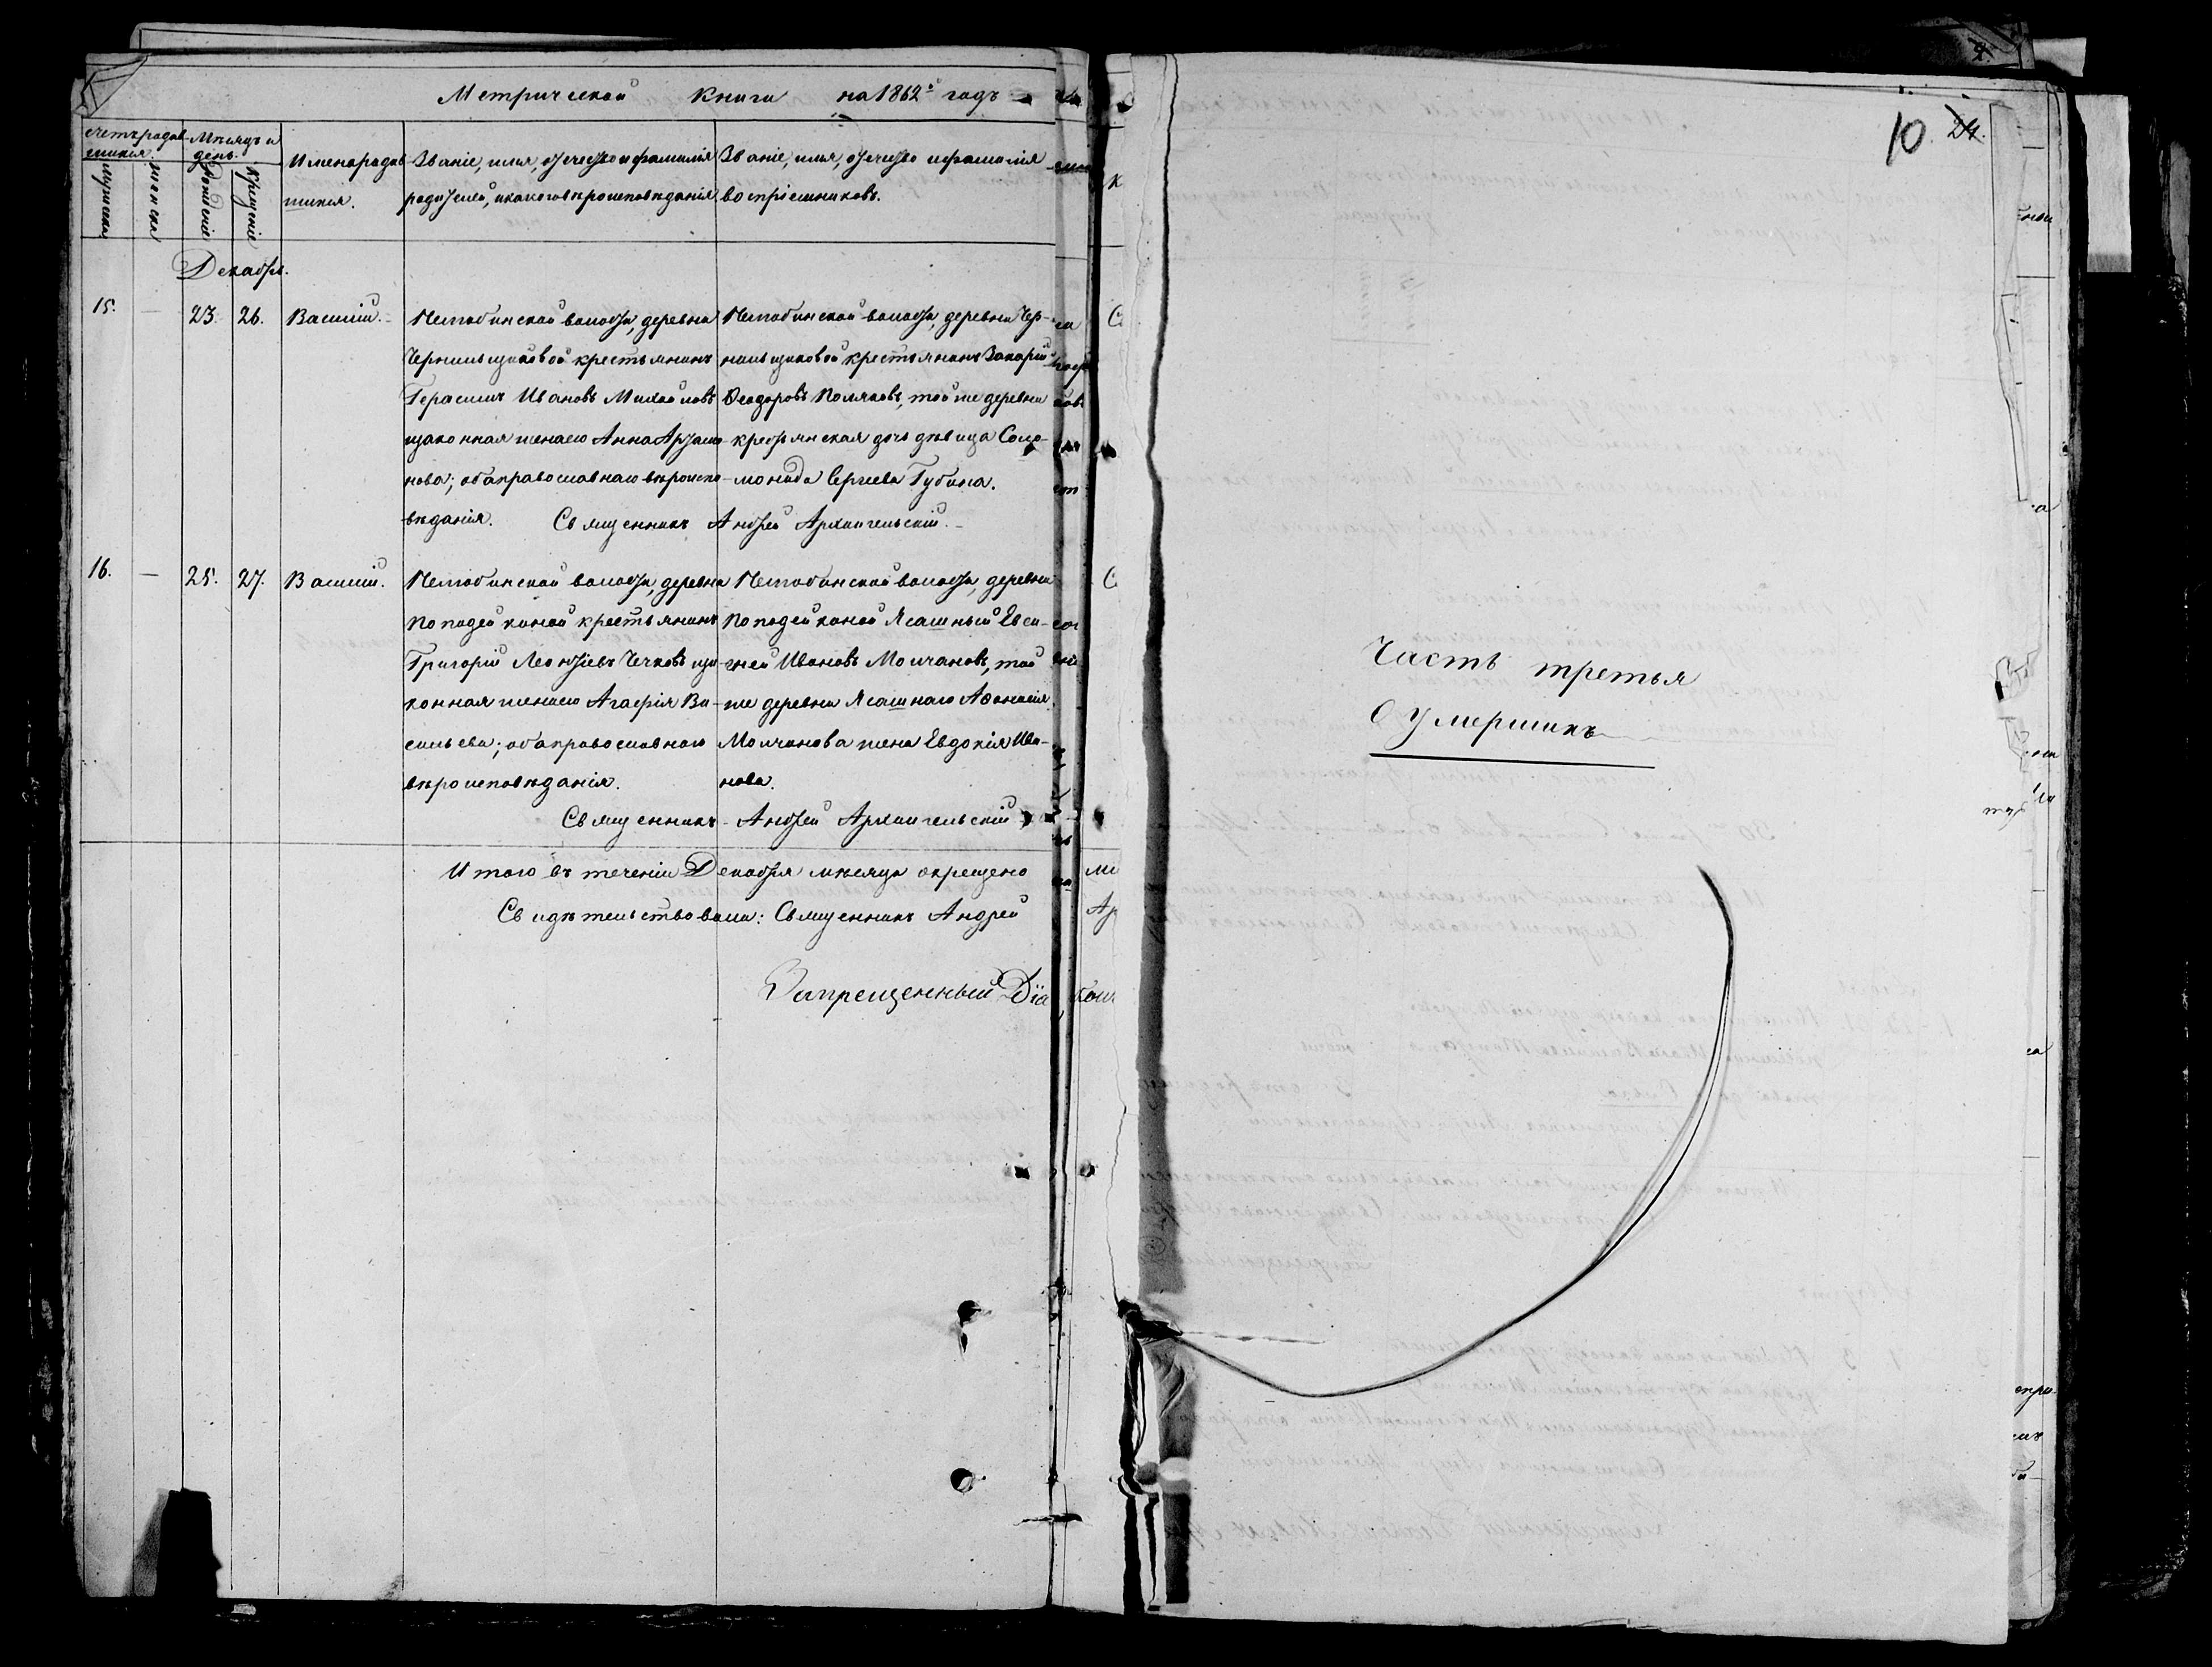 Метрической Книги на 1862й годъ
Счетъ родив-
шихся.
Мѣсяцъ и
день.
мужеска
женска
Рожденіе
Крещеніе
Имена родив-
шихся.
Званіе, имя, отчество и фамилія
родителей, и какого вѣроисповѣданія.
Званіе, имя, отчество и фамилія
воспріемниковъ.
Декабря.
15. — 23. 26. Василій.
волости, деревни
Чернильщиковой крестьянинъ
Герасимъ Ивановъ Михайловъ
и законная жена его Анна Артамо-
нова; оба православнаго вѣроиспо-
вѣданія.
волости, деревни Чер-
нильщиковой крестьянинъ Захарій
Ѳеодоровъ Поляковъ, той же деревни
крестьянская дочь дѣвица Соло-
монида Сергіева Губина.
Священникъ Андрей Архангельскій.
16. — 25. 27. Василій.
волости, деревни
Поподейкиной крестьянинъ
Григорій Леонтіевъ Чечковъ и за-
конная жена его Агафія Ва-
сильева; оба православнаго
вѣроисповѣданія.
волости, деревни
Поподейкиной Ясашный Евси-
гней Ивановъ Молчановъ, той
же деревни Ясашнаго Аѳанасія
Молчанова жена Евдокія Ива-
нова.
Священникъ Андрей Архангельскій
Итого въ теченіи Декабря мѣсяца окрещено
Свидѣтельствовали: Священникъ Андрей
Запрещенный Діа
10. 24.
Часть третья
О умершихъ